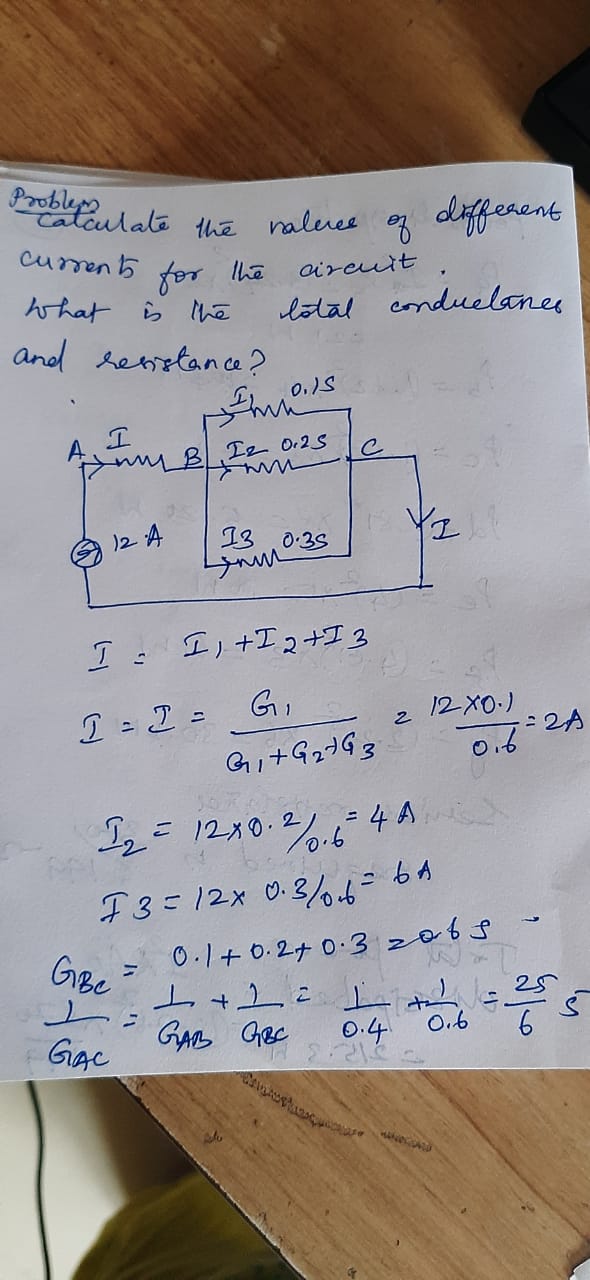 Problem
Calculate the values of different
currents for the circuit.
What is the total conductances
and resistance?
I1 0.1S
A I B I2 0.2S C
12 A I3 0.3S I
I = I1 + I2 + I3
I = I = G1 / G1+G2+G3 = 12×0.1 / 0.6 = 2A
I2 = 12×0.2/0.6 = 4 A
I3 = 12× 0.3/0.6 = 6A
GBC = 0.1+0.2+0.3 = 0.6 S
1/GAC = 1/GAB + 1/GBC = 1/0.4 + 1/0.6 = 25/6 S